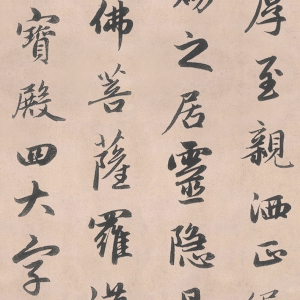 厚至親洒正
之居靈隐
佛菩薩羅
寶殿四大字